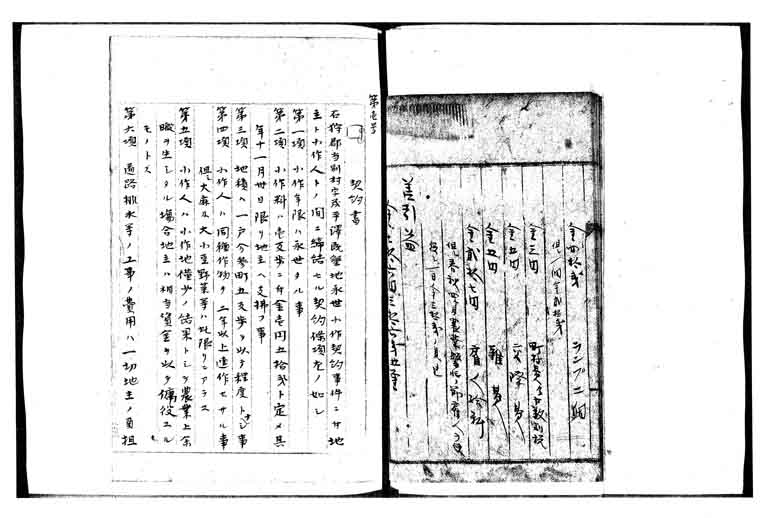 ランプ二個
金三円 町村費戸数割税
金五円 交際費
金五円 雑費
金弐拾七円 雇人給料
差引益
第壱号
契約書
石狩郡当別村字茂平澤既墾地永世小作契約事件ニ付地
主ト小作人トノ間ニ締結セル契約條項左ノ如シ
第一項 小作年限ハ永世タル事
第二項 小作料ハ壱反歩ニ付金壱円五拾銭ト定メ其
年十一月卅日限リ地主ヘ支拂フ事
第三項 地積ハ一戸分参町五反歩ヲ以テ程度トナシ事
第四項 小作人ハ同種作物ヲ二年以上連作セサル事
但シ大麻及大小豆野菜等ハ此限リニアラス
第五項 小作人ハ小作地僅少ノ結果トシテ農業上余
暇ヲ生シタル場合地主ハ相当賃金ヲ以テ傭役スル
モノトス
第六項 道路排水等ノ工事ノ費用ハ一切地主ノ負担